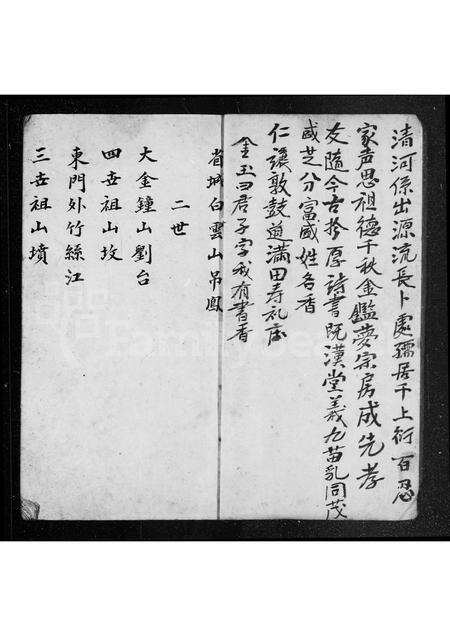 清河係出源流長卜處孺居千上衍百忍
家声思祖德千秋金鑑夢宗房成先孝
友隨今古於厚詩書既漢堂義九苗乳同茂
國芝分富國姓名香
仁讓敦鼓道滿田寿礼店
金玉曰君子字我有書香
省城白雲山吊鳳
二世
大金鐘山劉台
四世祖山坟
東門外竹絲江
三世祖山墳